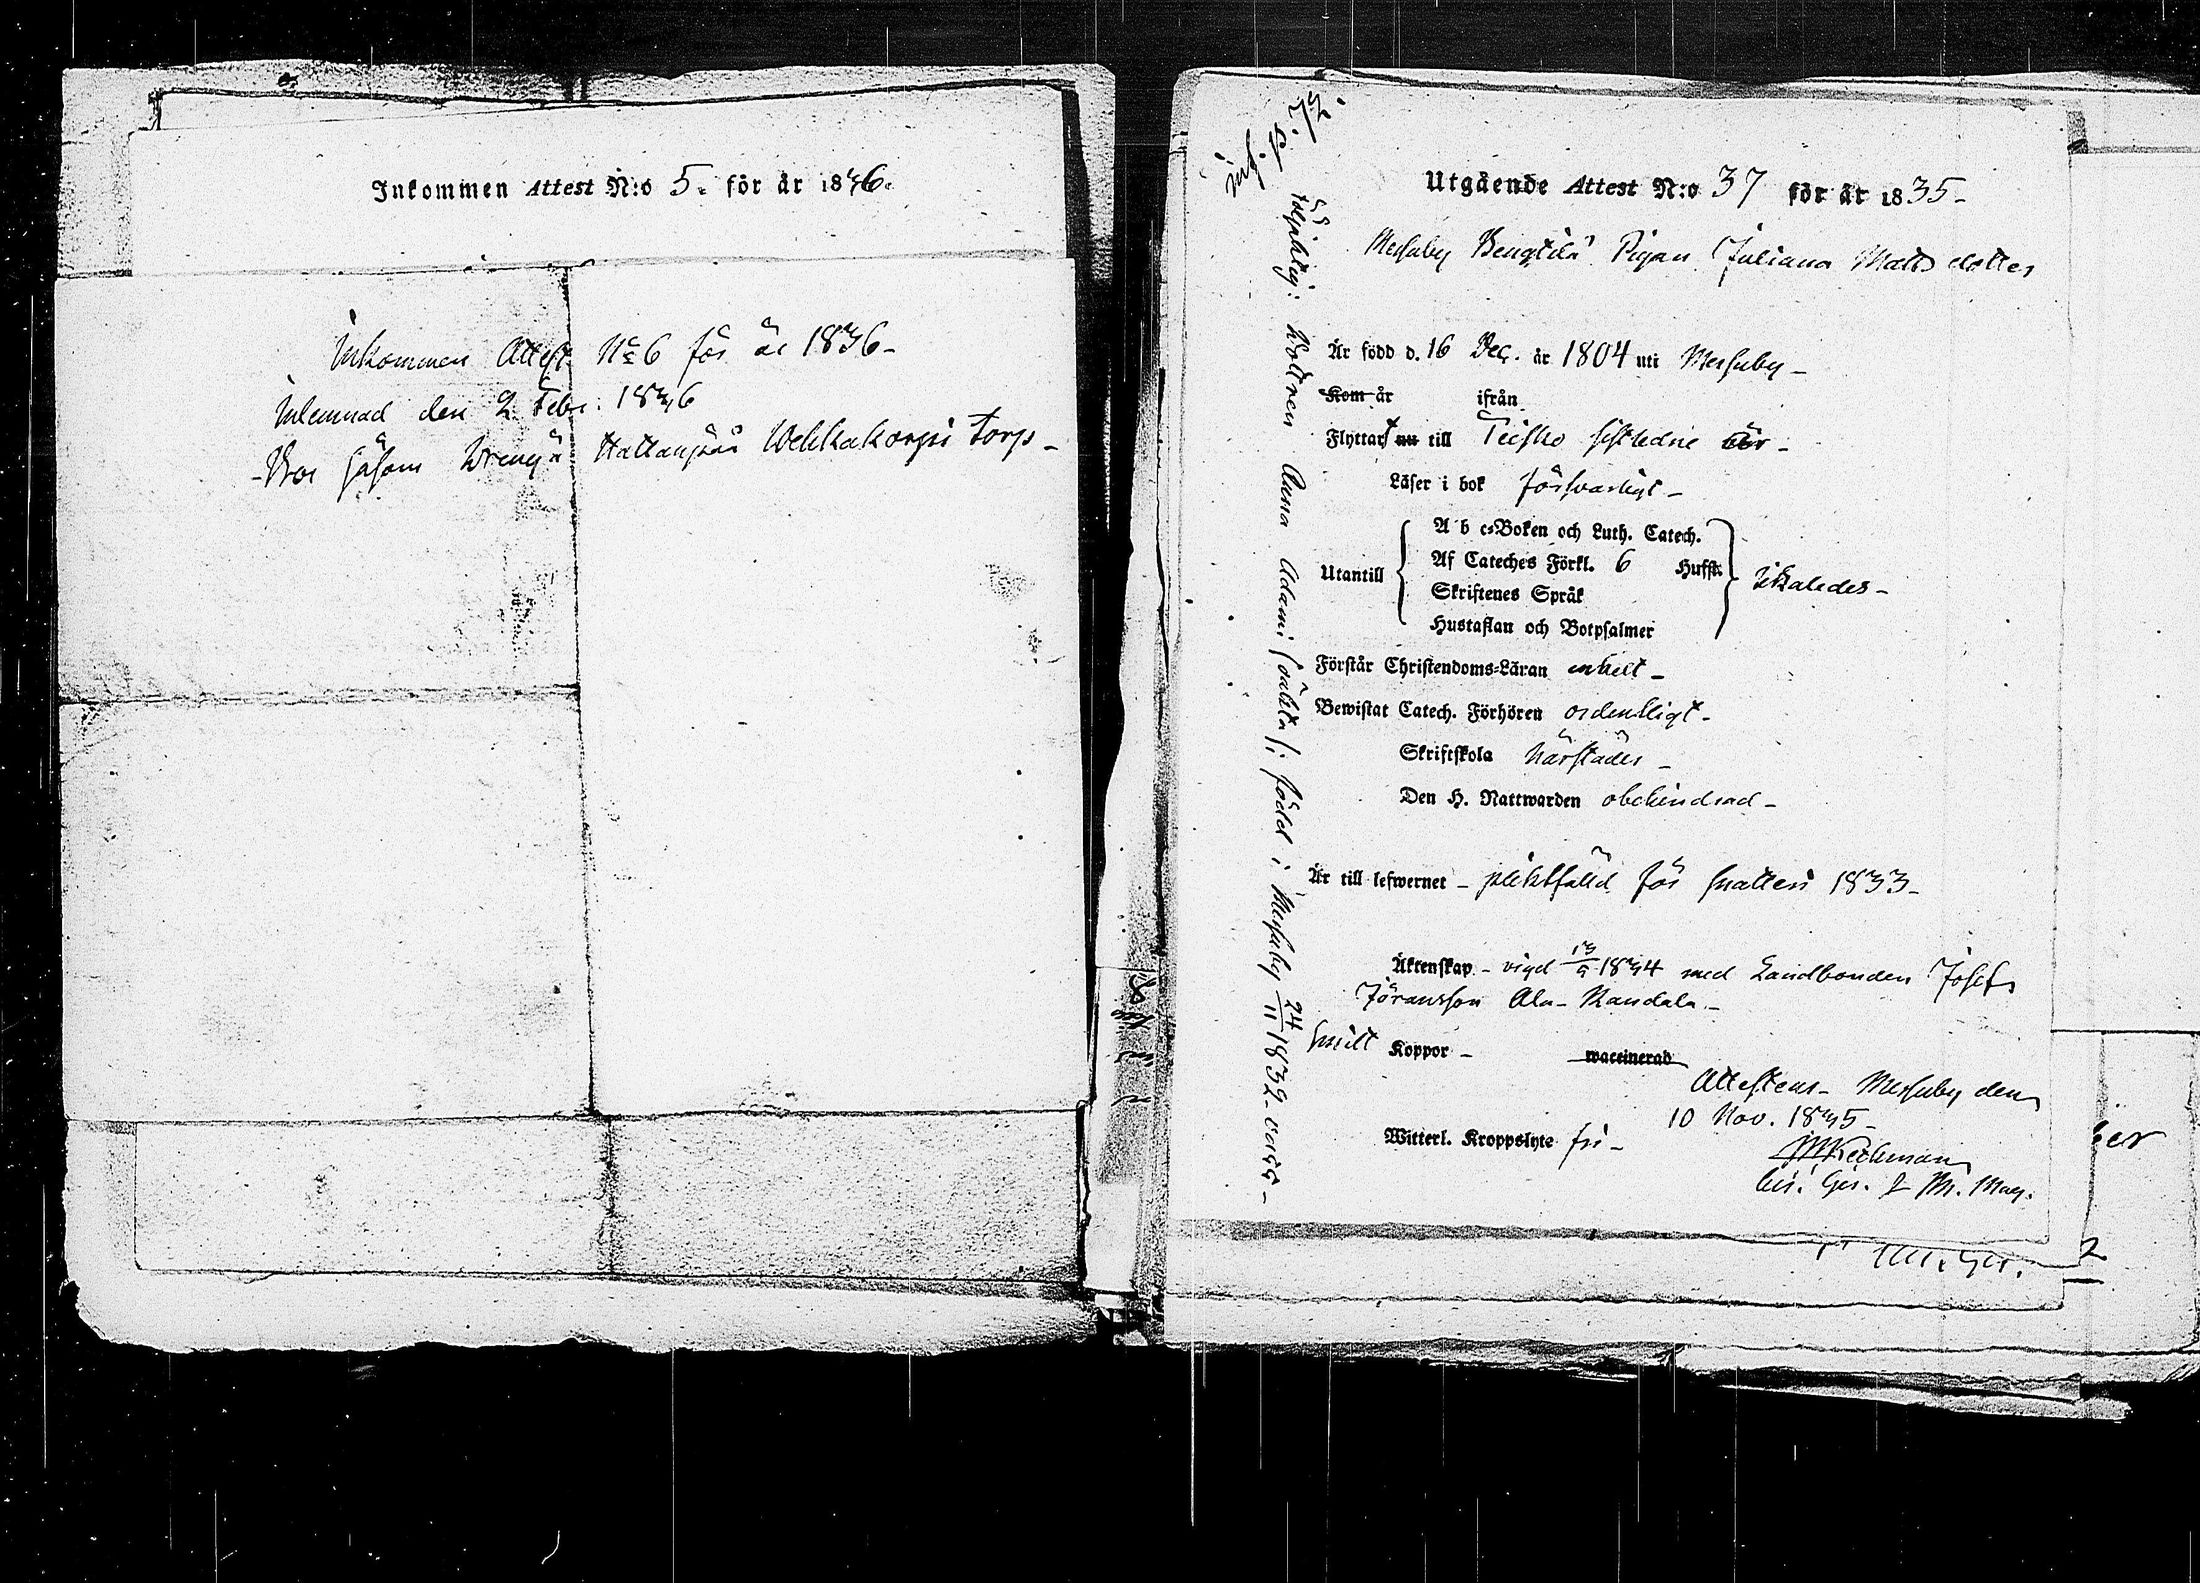 Inkommen Attest N:o 5. för år 1836.
Inkommen Attest No 6 för år 1836 -
Inlemnad den 2 Febr. 1836
- Bor såsom Dräng å Hattanpää Torp -
Utgående Attest N:o 37 för år 1835 -
Messuby Bengtilä Pigan Juliana Matts dotter
Är född d. 16 Dec. år 1804 uti Messuby -
Kom år ifrån
Flyttat nu till Teisko sistledne år -
Läser i bok försvarligt -
Utantill
A b c-Boken och Luth. Catech.
Af Cateches Förkl. 6 Hufst.
Skriftenes Språk
Hustaflan och Botpsalmer
likaledes -
Förstår Christendoms-Läran enkelt -
Bewistat Catech. Förhören ordentligt -
Skriftskola härstädes -
Den H. Nattwarden obehindrad -
Är till lefwernet - pliktfälld för 1833 -
Äktenskap - vigd 13/9 1834 med Landbonden Josef
Jöransson Ala-Kandala -
Koppor - waccinerad
Attesteras - Messuby den
10 Nov. 1835 -
Wittterl. Kroppslyte fri -
Anna Adami oäkta född i Messuby 24/11 1832 -